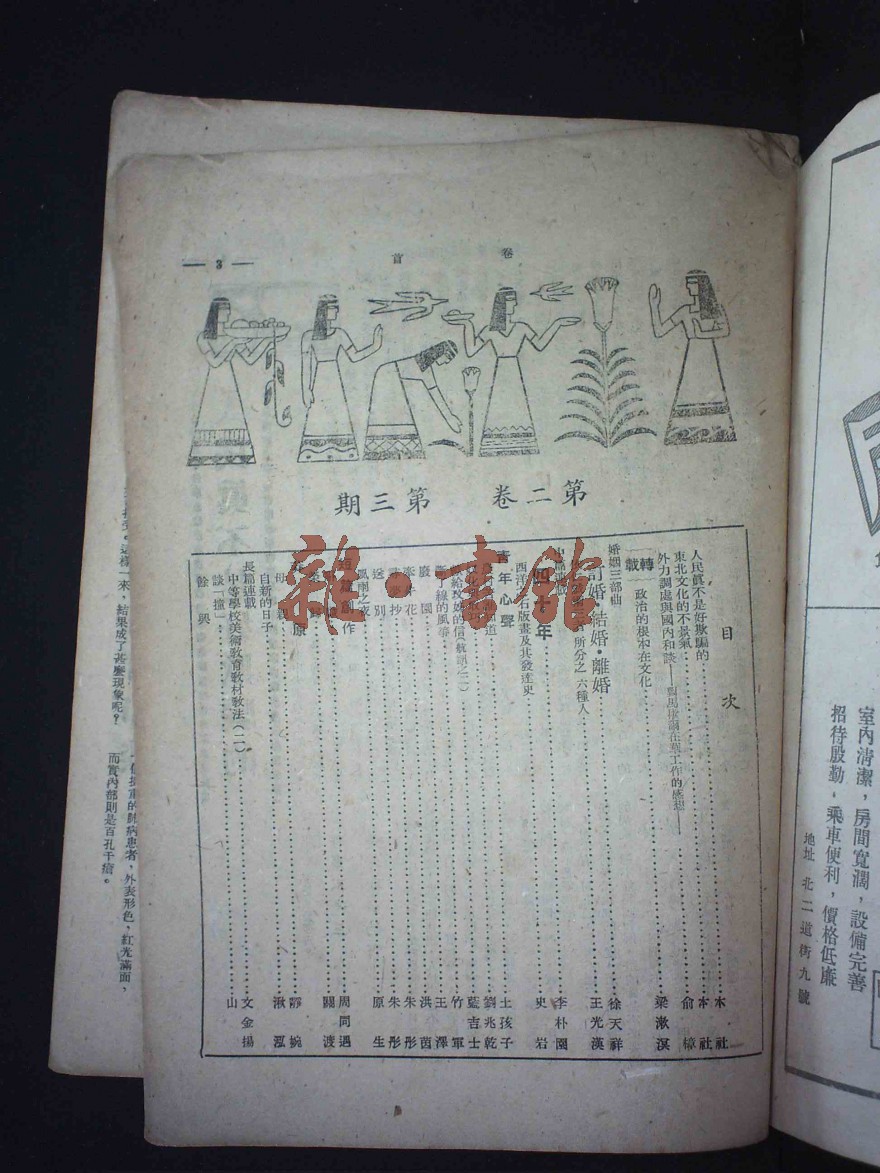 卷首
— 3 —
第二卷 第三期
目次
人民眞不是好欺騙的 本社
東北文化的不景氣 本社
外力調處與國內和談 俞樟
轉載
政治的根本在文化 梁漱溟
婚姻三部曲
訂婚・結婚・離婚 徐天祥
所分之六種人 王光漢
四十年 李朴園
西洋石版畫及其發達史 史岩
青年心聲
土孩子
劉兆乾
藍吉士
給玫如的信
竹軍
斷了線的風箏 王澤
廢園 洪茵
朱彤
抄 朱彤
送別
風雨之夜 原生
短篇創作
周同遇
關渡
原
母親 靜婉
自新的日子 湫泓
長篇連載
中等學校美術教育教材教法(一) 文金揚
談「撞」 山
餘興
雜·書館
這樣一來，結果成了甚麼現象呢？
重的肺病患者，外表形色，紅光滿面，
而實內部則是百孔千瘡。
室內清潔，房間寬濶，設備完善
招待殷勤，乘車便利，價格低廉
地址 北二道街九號